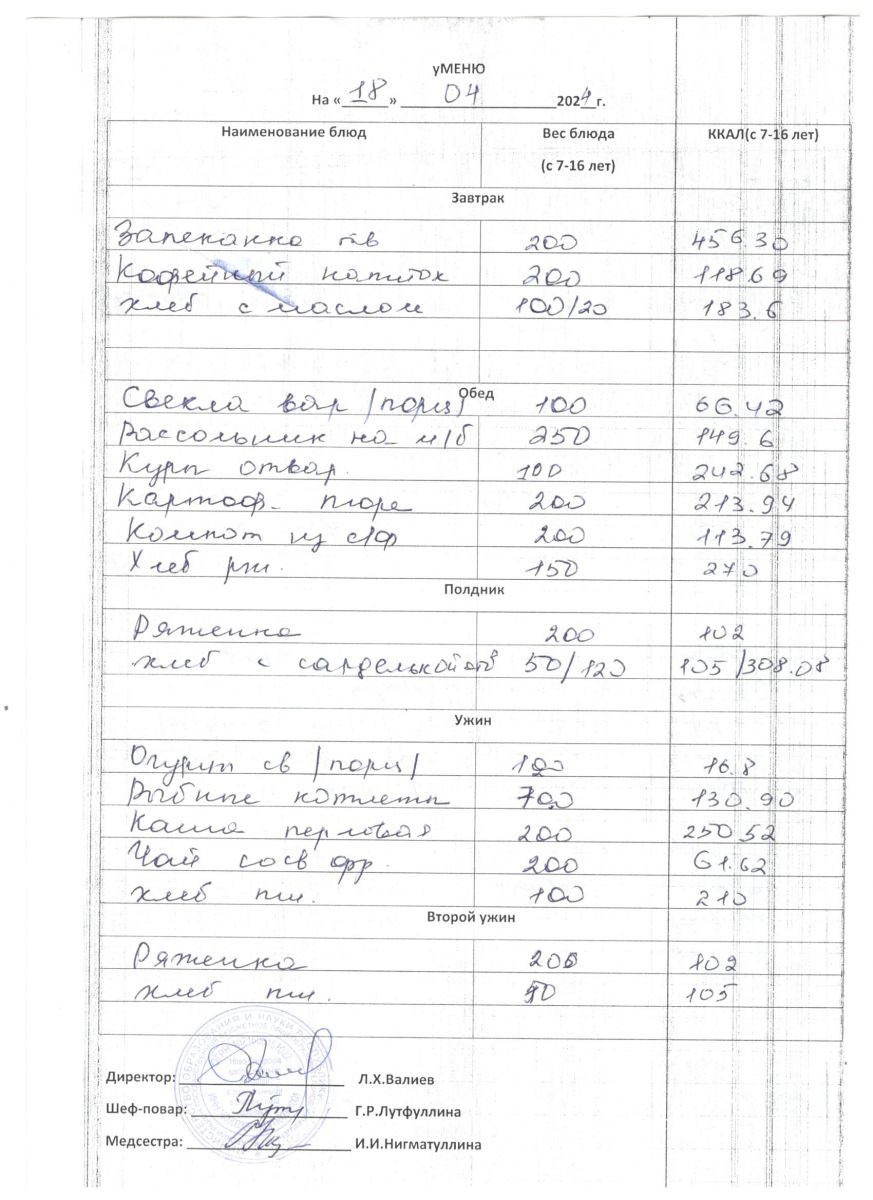 уМЕНЮ
На «18» 04 2024 г.
Наименование блюд Вес блюда (с 7-16 лет) ККАЛ(с 7-16 лет)
Завтрак
Запеканка тв 200 456.30
Кофейный напиток 200 118.69
хлеб с маслом 100/20 183.6
Обед
Свекла вар /порц/ 100 66.42
Рассольник на м/б 250 149.6
Куры отвар. 100 242.68
Картоф. пюре 200 213.94
Компот из с/ф 200 113.79
Хлеб рж. 150 270
Полдник
Ряженка 200 102
хлеб с сарделькой отв 50/120 105/308.08
Ужин
Огурцы св /порц/ 100 16.8
Рыбные котлеты 100 130.90
Каша перловая 200 250.52
Чай со св фр. 200 61.62
хлеб пш. 100 210
Второй ужин
Ряженка 200 102
хлеб пш. 50 105
Директор: Л.Х.Валиев
Шеф-повар: Г.Р.Лутфуллина
Медсестра: И.И.Нигматуллина